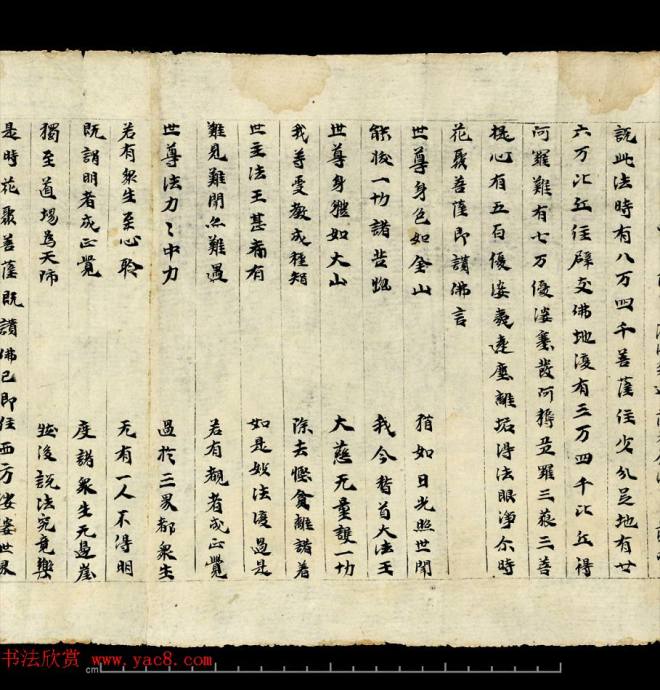 說此法時有八万四千菩薩住少分足地有廿
六万比丘住辟支佛地復有三万四千比丘得
阿羅難有七万優婆塞發阿耨三羅三藐三菩
提心有五百優婆夷遠塵離垢得法眼淨尒時
花聚菩薩即讃佛言
世尊身色如金山 猶如日光照世間
能救一切諸苦惱 我今稽首大法王
世尊身體如大山 大慈无量護一切
我等受教成種智 除去慳貪離諸著
世主法王甚希有 如是妙法復過是
難見難聞亦難遇 若有覩者成正覺
世尊法力〻中力 過於三界都衆生
若有衆生至心聆 无有一人不得明
既諸明者成正覺 度諸衆生无邊崖
獨至道場為天師 然後說法究竟樂
是時花聚菩薩既讃佛已即住西方娑婆世界
书法欣赏 www.yac8.com
cm